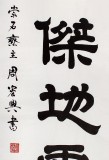 傑地靈
崇石齋主周宏興書